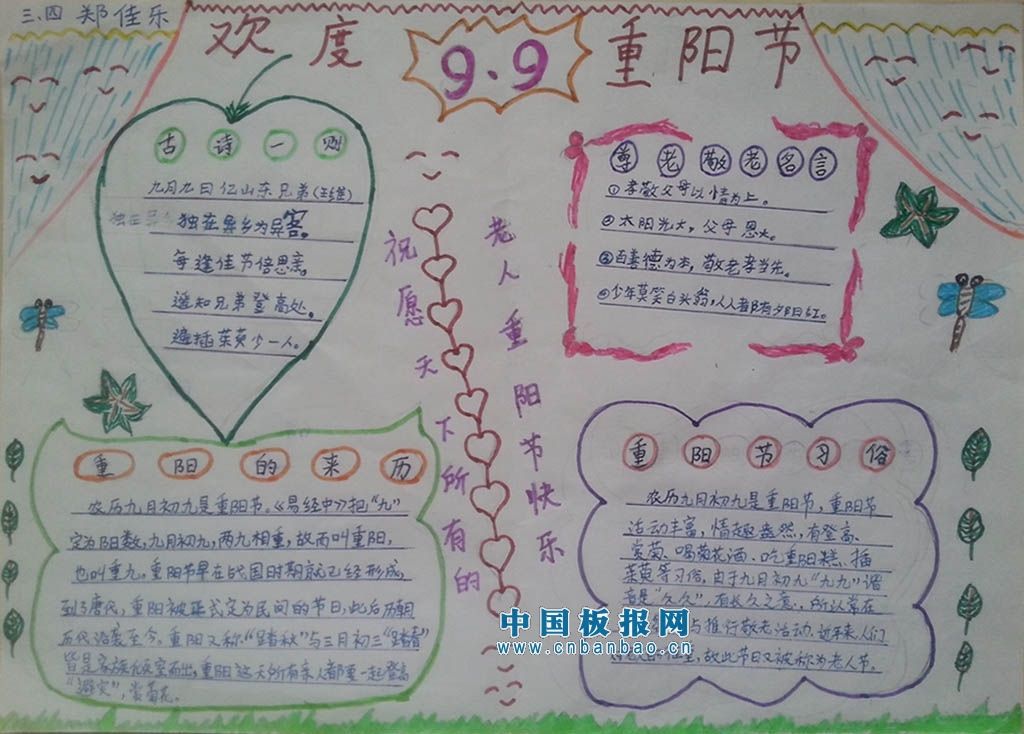 三.四 郑佳乐
欢度 9.9 重阳节
古诗一则
九月九日忆山东兄弟(王维)
独在异 独在异乡为异客。
每逢佳节倍思亲。
遥知兄弟登高处,
遍插茱萸少一人。
祝愿天下所有的
老人重阳节快乐
尊老敬老名言
①孝敬父母以情为上。
②太阳光大,父母恩大。
③百善德为本,敬老孝当先。
④少年莫笑白头翁,人人都有夕阳红。
重阳的来历
农历九月初九是重阳节。《易经中》把“九”
定为阳数,九月初九,两九相重,故而叫重阳,
也叫重九,重阳节早在战国时期就已经形成,
到了唐代,重阳被正式定为民间的节日,此后历朝
历代沿袭至今。重阳又称“踏秋”与三月初三“踏春”
皆是家族倾室而出,重阳这天所有亲人都要一起登高
“避灾”,赏菊花。
重阳节习俗
农历九月初九是重阳节,重阳节
活动丰富,情趣盎然,有登高、
赏菊、喝菊花酒、吃重阳糕、插
茱萸等习俗,由于九月初九“九九”谐
音是“久久”,有长久之意,所以常在
与推行敬老活动。近年来,人们
故此节日又被称为老人节。
中国板报网
www.cnbanbao.cn